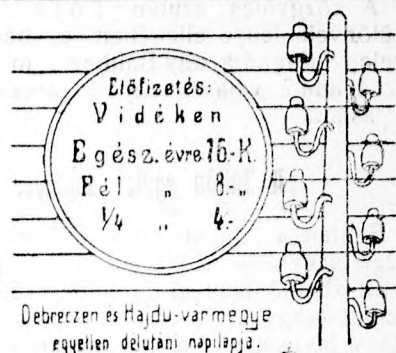 Előfizetés:
Vidéken
Egész. évre 16.-K.
Fél „ 8.-
1/4 „ 4.-
Debreczen és Hajdu-vármegye
egyetlen délutáni napilapja.